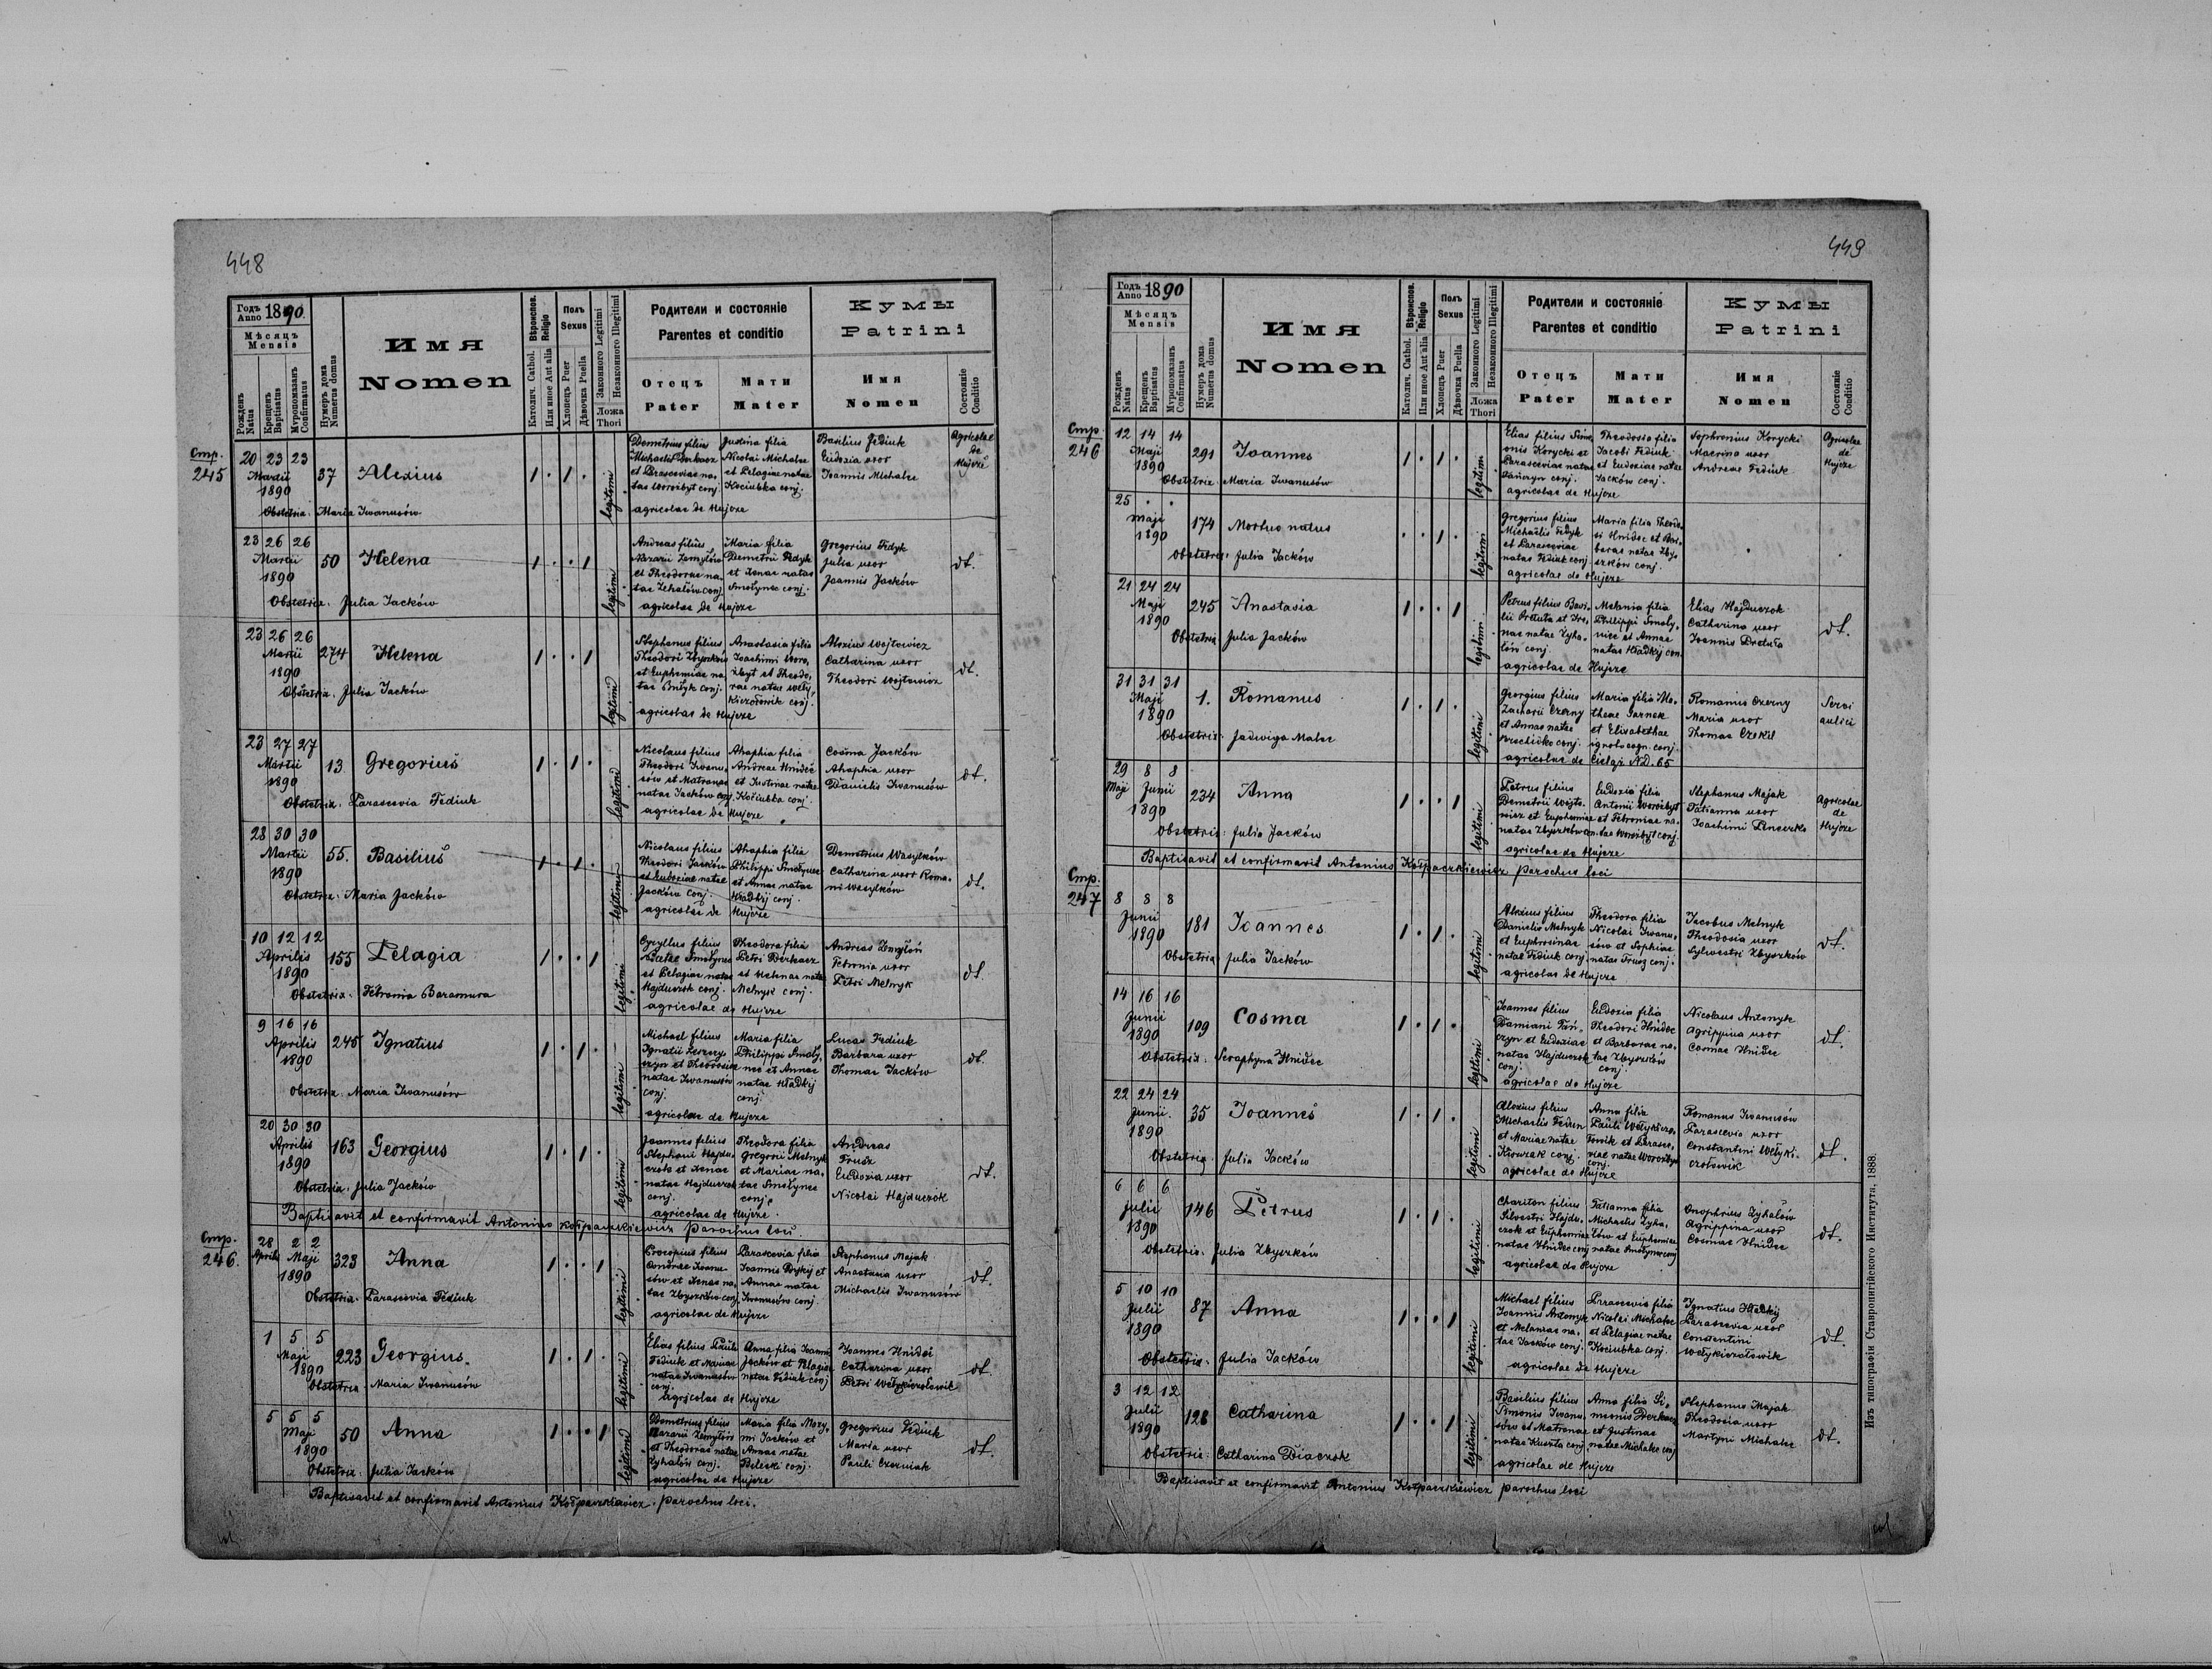 448
Годъ Anno 1890
Мѣсяцъ
Mensis
Рожденъ Natus
Крещенъ Baptisatus
Мѵропомазанъ Confirmatus
Нумеръ дома Numerus domus
Имя
Nomen
Вѣроиспов. Religio
Католич. Cathol.
Или иное Aut alia
Полъ
Sexus
Хлопецъ Puer
Дѣвочка Puella
Законного Legitimi
Незаконного Illegitimi
Ложа
Thori
Родители и состояніе
Parentes et conditio
Отецъ
Pater
Мати
Mater
Кумы
Patrini
Имя
Nomen
Состояніе
Conditio
Стр. 245
20 23 23
Martii
1890
37
Alexius
1 . 1 .
legitimi
Demetrius filius
Michaelis Derkacz
et Parasceviae na-
tae Worobyt conj.
Justina filia
Nicolai Michalec
et Pelagiae natae
Kociubka conj.
agricolae de Hujcze
Basilius Fediuk
Eudoxia uxor
Joannis Michalec
Agricolae
de
Hujcze
Obstetrix: Maria Iwanusów
23 26 26
Martii
1890
50
Helena
1 . . 1
legitimi
Andreas filius
Nazarii Zemyłów
et Theodorae na-
tae Zehalów conj.
Maria filia
Demetrii Fedyk
et Xenae natae
Smołynec conj.
agricolae de Hujcze
Gregorius Fedyk
Julia uxor
Joannis Jacków
dt.
Obstetrix: Julia Jacków
23 26 26
Martii
1890
274
Helena
1 . . 1
legitimi
Stephanus filius
Theodori Zbyszków
et Euphemiae na-
tae Bryk conj.
Anastasia filia
Joachimi Woro-
zbyt et Theodo-
rae natae Weły-
kiczołowik conj.
agricolae de Hujcze
Alexius Wojtowicz
Catharina uxor
Theodori Wojtowicz
dt.
Obstetrix: Julia Jacków
23 27 27
Martii
1890
13
Gregorius
1 . 1 .
legitimi
Nicolaus filius
Theodori Iwanu-
sów et Matronae
natae Jacków conj.
Ahaphia filia
Andreae Hnideć
et Justinae natae
Kociubka conj.
agricolae de Hujcze
Cosma Jacków
Ahaphia uxor
Danielis Iwanusów
dt.
Obstetrix: Parascevia Fediuk
28 30 30
Martii
1890
55.
Basilius
1 . 1 .
legitimi
Nicolaus filius
Theodori Jacków
et Eudoxiae natae
Jacków conj.
Ahaphia filia
Philippi Smołynec
et Annae natae
Hładkij conj.
agricolae de Hujcze
Demetrius Wasylków
Catharina uxor Roma-
ni Wasylków
dt.
Obstetrix: Maria Jacków
10 12 12
Aprilis
1890
155
Pelagia
1 . . 1
legitimi
Cyryllus filius
Nicetae Smołynec
et Pelagiae natae
Hajduczok conj.
Theodora filia
Petri Derkacz
et Helenae natae
Melnyk conj.
agricolae de Hujcze
Andreas Zemyłów
Petronia uxor
Petri Melnyk
dt.
Obstetrix: Petronia Baramura
9 16 16
Aprilis
1890
245
Ignatius
1 . 1 .
legitimi
Michael filius
natae Iwanusów
conj.
Maria filia
Philippi Smoły-
nec et Annae
natae Hładkij
conj.
agricolae de Hujcze
Lucas Fediuk
Barbara uxor
Thomae Jacków
dt.
Obstetrix: Maria Iwanusów
20 30 30
Aprilis
1890
163
Georgius
1 . 1 .
legitimi
Joannes filius
Stephani Hajdu-
czok et Xenae
natae Hajduczok
conj.
Theodora filia
Gregorii Melnyk
et Mariae na-
tae Smołynec
conj.
agricolae de Hujcze
Andreas
Frusz
Eudoxia uxor
Nicolai Hajduczok
dt.
Obstetrix: Julia Jacków
Baptisavit et confirmavit Antonius Kołpaczkiewicz parochus loci.
Стр. 246.
28 2 2
Aprilis Maji
1890
323
Anna
1 . . 1
legitimi
Procopius filius
Andreae Iwanu-
sów et Xenae na-
tae Zbyszków conj.
Parascevia filia
Annae natae
Iwanusów conj.
agricolae de Hujcze
Stephanus Majak
Anastasia uxor
Michaelis Iwanusów
dt.
Obstetrix: Parascevia Fediuk
1 5 5
Maji
1890
223
Georgius.
1 . 1 .
legitimi
Elias filius Pauli
Fediuk et Mariae
natae Iwanusów
conj.
Anna filia Joannis
Jacków et Pelagiae
natae Fediuk conj.
agricolae de Hujcze
Joannes Hnideć
Catharina uxor
Petri Wełykiczołowik
dt.
Obstetrix: Maria Iwanusów
5 5 5
Maji
1890
50
Anna
1 . . 1
legitimi
Demetrius filius
Nazarii Zemyłów
et Theodorae natae
Zyhalów conj.
Maria filia Maxy-
mi Jacków et
Annae natae
Bilecki conj.
agricolae de Hujcze
Gregorius Fediuk
Maria uxor
Pauli Czerniak
dt.
Obstetrix: Julia Jacków
Baptisavit et confirmavit Antonius Kołpaczkiewicz parochus loci.
449
Годъ Anno 1890
Мѣсяцъ
Mensis
Рожденъ Natus
Крещенъ Baptisatus
Мѵропомазанъ Confirmatus
Нумеръ дома Numerus domus
Имя
Nomen
Вѣроиспов. Religio
Католич. Cathol.
Или иное Aut alia
Полъ
Sexus
Хлопецъ Puer
Дѣвочка Puella
Законного Legitimi
Незаконного Illegitimi
Ложа
Thori
Родители и состояніе
Parentes et conditio
Отецъ
Pater
Мати
Mater
Кумы
Patrini
Имя
Nomen
Состояніе
Conditio
Стр. 246
12 14 14
Maji
1890
291
Joannes
1 . 1 .
legitimi
Elias filius Sime-
onis Korycki et
Parasceviae natae
Pańczyn conj.
Theodosia filia
Jacobi Fediuk
et Eudoxiae natae
Jacków conj.
agricolae de Hujcze
Sophronius Korycki
Macrina uxor
Andreae Fediuk
Agricolae
de
Hujcze
Obstetrix: Maria Iwanusów
25 .
Maji
1890
174
Mortuo natus
. . 1 .
legitimi
Gregorius filius
Michaelis Fedyk
et Parasceviae
natae Fediuk conj.
Maria filia Theodo-
si Hnidec et Bar-
barae natae Zby-
szków conj.
agricolae de Hujcze
Obstetrix: Julia Jacków
21 24 24
Maji
1890
245
Anastasia
1 . . 1
legitimi
Petrus filius Basi-
lii Dretuła et Ire-
nae natae Zyha-
lów conj.
Melania filia
Philippi Smoły-
nec et Annae
natae Hładkij con.
agricolae de Hujcze
Elias Hajduczok
Catharina uxor
Joannis Dretuła
dt.
Obstetrix Julia Jacków
31 31 31
Maji
1890
1.
Romanus
1 . 1 .
legitimi
Georgius filius
Zacharii Czerny
et Annae natae
conj.
Maria filia Ma-
theae Garnek
et Elisabethae
ignoto cogn. conj.
N.D. 65
Romanus Czerny
Maria uxor
Thomae Czekil
Servi
aulici
Obstetrix: Jadwiga Malec
29 8 8
Maji Junii
1890
234
Anna
1 . . 1
legitimi
Petrus filius
Demetrii Wojto-
wicz et Euphemiae
natae Zbyszków con.
Eudoxia filia
Antonii Worozbyt
et Petroniae na-
tae Worozbyt conj.
agricolae de Hujcze
Stephanus Majak
Tatianna uxor
Joachimi
Agricolae
de
Hujcze
Obstetrix: Julia Jacków
Baptisavit et confirmavit Antonius Kołpaczkiewicz parochus loci
Стр. 247
8 8 8
Junii
1890
181
Joannes
1 . 1 .
legitimi
Alexius filius
Danielis Melnyk
et Euphrosinae
natae Fediuk conj.
Theodora filia
Nicolai Iwanu-
sów et Sophiae
natae Frusz conj.
agricolae de Hujcze
Jacobus Melnyk
Theodosia uxor
Sylvestri Zbyszków
dt.
Obstetrix: Julia Jacków
14 16 16
Junii
1890
109
Cosma
1 . 1 .
legitimi
Joannes filius
Damiani Pań-
czyn et Eudoxiae
natae Hajduczok
conj.
Eudoxia filia
Theodori Hnidec
et Barbarae na-
tae Zbyszków
conj.
agricolae de Hujcze
Nicolaus Antonyk
Agrippina uxor
Cosmae Hnidec
dt.
Obstetrix: Seraphyna Hnidec
22 24 24
Junii.
1890
35
Joannes
1 . 1 .
legitimi
Alexius filius
Michaelis Fedun
et Mariae natae
Krowczak conj.
Anna filia
Pauli Wełykiczo-
łowik et Parasce-
viae natae Worozbyt
conj.
agricolae de Hujcze
Romanus Iwanusów
Parascevia uxor
Constantini Wełyki-
czołowik
dt.
Obstetrix: Julia Jacków
6 6 6
Julii
1890
146
Petrus
1 . 1 .
legitimi
Chariton filius
Silvestri Hajdu-
czok et Euphemiae
natae Hnidec conj.
Tatianna filia
Michaelis Zyha-
lów et Euphemiae
natae Smołynec conj.
agricolae de Hujcze
Onophrius Zyhalów
Agrippina uxor
Cosmae Hnidec
dt.
Obstetrix: Julia Zbyszków
5 10 10
Julii
1890
87
Anna
1 . . 1
legitimi
Michael filius
Joannis Antonyk
et Melaniae na-
tae Jacków conj.
Parascevia filia
Nicolai Michalec
et Pelagiae natae
Kociubka conj.
agricolae de Hujcze
Ignatius Hładkij
Parascevia uxor
Constantini
Wełykiczołowik
dt.
Obstetrix: Julia Jacków
3 12 12
Julii
1890
128
Catharina
1 . . 1
legitimi
Basilius filius
Simonis Iwanu-
sów et Matronae
natae Kuszta conj.
Anna filia Si-
meonis Derkacz
et Justinae
natae Michalec conj.
agricolae de Hujcze
Stephanus Majak
Theodosia uxor
Martyni Michalec
dt.
Obstetrix: Catharina Diaczok
Baptisavit et confirmavit Antonius Kołpaczkiewicz parochus loci
Изъ типографіи Ставропигійского Института, 1888.